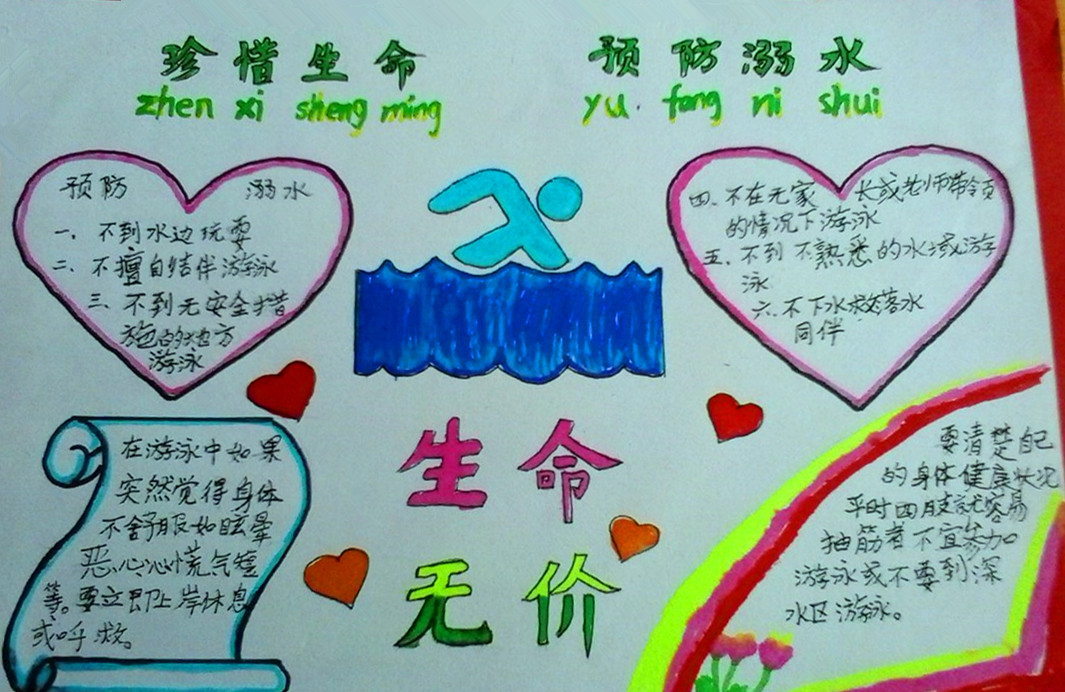 珍惜生命 预防溺水
zhen xi sheng ming yu fang ni shui
预防 溺水
一、不到水边玩耍
二、不擅自结伴游泳
三、不到无安全措
施的地方
游泳
四、不在无家长或老师带领
的情况下游泳
五、不到不熟悉的水域游
泳
六、不下水救落水
同伴
生命
无价
在游泳中如果
突然觉得身体
不舒服如眩晕
恶心心慌气短
等。要立即上岸休息
或呼救。
要清楚自己
的身体健康状况
平时四肢就容易
抽筋者不宜参加
游泳或不要到深
水区游泳。